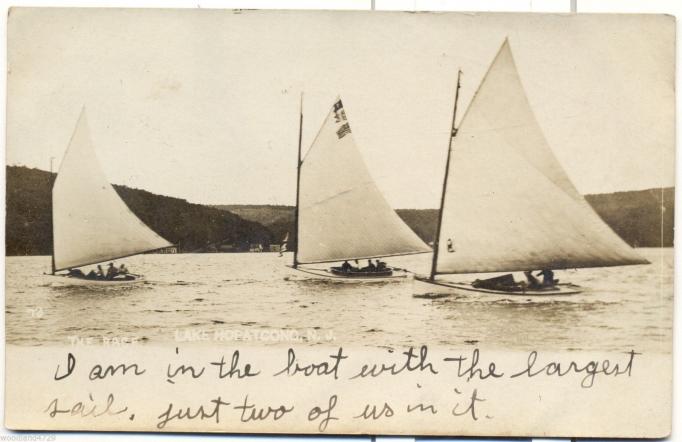 70
THE RACE LAKE HOPATCONG, N. J.
I am in the boat with the largest
sail. just two of us in it.
woodland4729